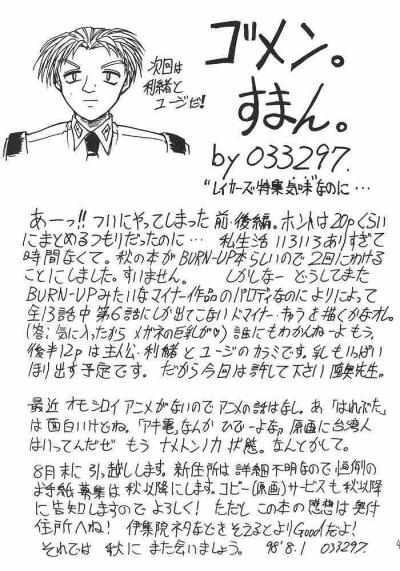 ゴメン。
すまん。
次回は
利緒と
ユージだ!
by 033297.
"レイカーズ・特集気味"なのに…
あーっ!!ついにやってしまった前・後編。ホントは20pくらい
にまとめるつもりだったのに… 私生活いろいろありすぎて
時間なくて。秋の本がBURN-UP本らしいので2回にわける
ことにしました。すいません。 しかしなー どうしてまた
BURN-UPみたいなマイナー作品のパロディなのによりによって
全13話中第6話にしか出てこないドマイナーきゅうを描くかなオレ。
(答:気に入ったから メガネの巨乳が♡)誰にもわかんねーよもう。
後半12pは主人公・利緒とユージのカラミです。乳もいっぱい
ほり出す予定です。だから今回は許して下さい 先生。
最近オモシロイアニメがないのでアニメの話はなし。あ「はれぶた」
は面白いけどね。「アキ電」なんかひでーよな。原画に台湾人
はいってんだぜ もうナメトンノカ状態。なんとかして。
8月末に引っ越します。新住所は詳細不明なので恒例の
お手紙募集は秋以降にします。コピー(原画)サービスも秋以降
に告知しますのでよろしく!ただしこの本の感想は奥付
住所へね! 伊集院ネタなどをそえるとよりGoodだよ!
それでは秋にまた会いましょう。 98'8.1 033297.